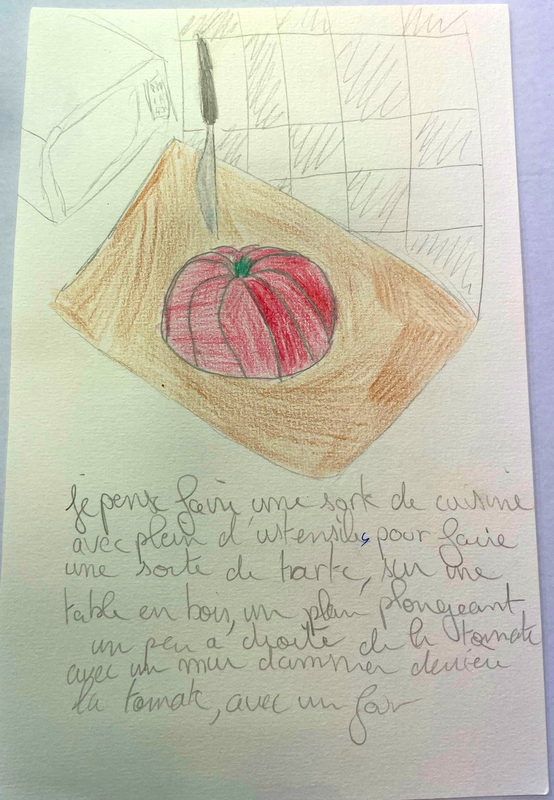 je pense faire une sorte de cuisine
avec plein d'ustensils, pour faire
une sorte de tarte, sur une
table en bois, un plan plongeant
un peu a droite de la tomate
avec un mur dammier derriere
la tomate, avec un four